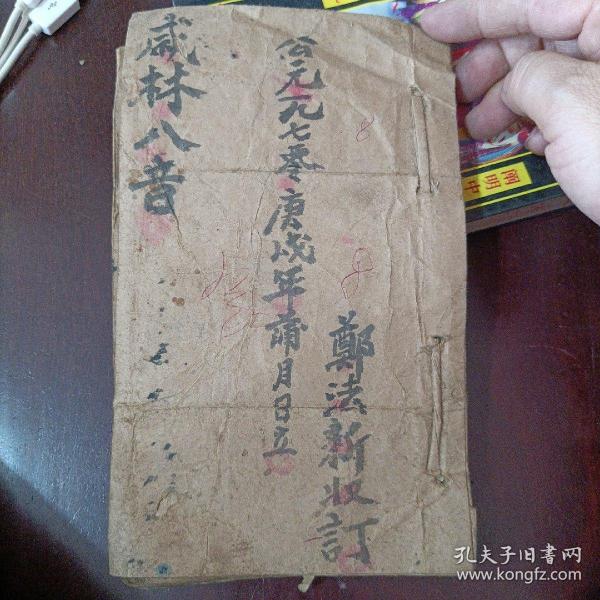 鄭法新收訂
公元一九七零庚戌年蒲月日立
戚林八音
8
8
中明闡
孔夫子旧书网
www.kongfz.com